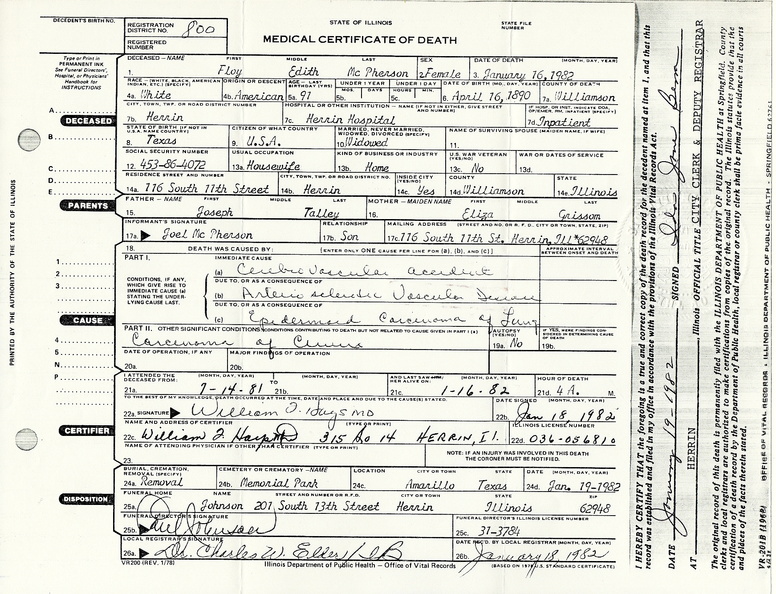 DECEDENT'S BIRTH NO.
REGISTRATION DISTRICT NO. 800
REGISTERED NUMBER
STATE OF ILLINOIS
STATE FILE NUMBER
MEDICAL CERTIFICATE OF DEATH
Type or Print in PERMANENT INK
See Funeral Directors', Hospital, or Physicians' Handbook for INSTRUCTIONS
DECEASED—NAME FIRST MIDDLE LAST SEX DATE OF DEATH (MONTH, DAY, YEAR)
1. Floy Edith McPherson 2. Female 3. January 16, 1982
RACE ORIGIN OR DESCENT AGE UNDER 1 YEAR UNDER 1 DAY DATE OF BIRTH (MO., DAY, YEAR) COUNTY OF DEATH
4a. White 4b. American 5a. 91 5b. 5c. 6. April 16, 1890 7a. Williamson
CITY, TOWN, TWP. OR ROAD DISTRICT NUMBER HOSPITAL OR OTHER INSTITUTION
7b. Herrin 7c. Herrin Hospital 7d. Inpatient
DECEASED
STATE OF BIRTH CITIZEN OF WHAT COUNTRY MARRIED, NEVER MARRIED, WIDOWED, DIVORCED (SPECIFY) NAME OF SURVIVING SPOUSE (MAIDEN NAME, IF WIFE)
8. Texas 9. U.S.A. 10. Widowed 11.
SOCIAL SECURITY NUMBER USUAL OCCUPATION KIND OF BUSINESS OR INDUSTRY U.S. WAR VETERAN (YES/NO) WAR OR DATES OF SERVICE
12. 453-86-4072 13a. Housewife 13b. Home 13c. No 13d.
RESIDENCE STREET AND NUMBER CITY, TOWN, TWP. OR ROAD DISTRICT NO. INSIDE CITY (YES/NO) COUNTY STATE
14a. 116 South 11th Street 14b. Herrin 14c. Yes 14d. Williamson 14e. Illinois
PARENTS
FATHER—NAME FIRST MIDDLE LAST MOTHER—MAIDEN NAME FIRST MIDDLE LAST
15. Joseph Talley 16. Eliza Grissom
INFORMANT'S SIGNATURE RELATIONSHIP MAILING ADDRESS (STREET AND NO. OR R.F.D., CITY OR TOWN, STATE, ZIP)
17a. Joel McPherson 17b. Son 17c. 116 South 11th St. Herrin, Ill 62948
18. DEATH WAS CAUSED BY: [ENTER ONLY ONE CAUSE PER LINE FOR (a), (b), AND (c)] APPROXIMATE INTERVAL BETWEEN ONSET AND DEATH
PART I. IMMEDIATE CAUSE
(a) Cerebro Vascular accident
CONDITIONS, IF ANY, WHICH GIVE RISE TO IMMEDIATE CAUSE (a) STATING THE UNDERLYING CAUSE LAST.
DUE TO, OR AS A CONSEQUENCE OF
(b) Arterio sclerotic Vascular Disease
DUE TO, OR AS A CONSEQUENCE OF
(c) Epidermoid Carcinoma of Lung
CAUSE
PART II. OTHER SIGNIFICANT CONDITIONS AUTOPSY (YES/NO)
Carcinoma of
19a. No 19b.
DATE OF OPERATION, IF ANY MAJOR FINDINGS OF OPERATION
20a. 20b.
I ATTENDED THE DECEASED FROM: (MONTH, DAY, YEAR) TO (MONTH, DAY, YEAR) AND LAST SAW HER ALIVE ON: (MONTH, DAY, YEAR) HOUR OF DEATH
21a. 7-14-81 21b. 21c. 1-16-82 21d. 4 A. M.
TO THE BEST OF MY KNOWLEDGE, DEATH OCCURRED AT THE TIME, DATE AND PLACE AND DUE TO THE CAUSE(S) STATED. DATE SIGNED (MONTH, DAY, YEAR)
22a. SIGNATURE William MD 22b. Jan 18, 1982
CERTIFIER
NAME AND ADDRESS OF CERTIFIER (TYPE OR PRINT) ILLINOIS LICENSE NUMBER
22c. William 315 So 14 HERRIN, Il. 22d. 036-056810
NAME OF ATTENDING PHYSICIAN IF OTHER THAN CERTIFIER (TYPE OR PRINT)
23.
NOTE: IF AN INJURY WAS INVOLVED IN THIS DEATH THE CORONER MUST BE NOTIFIED.
BURIAL, CREMATION, REMOVAL (SPECIFY) CEMETERY OR CREMATORY—NAME LOCATION CITY OR TOWN STATE DATE (MONTH, DAY, YEAR)
24a. Removal 24b. Memorial Park 24c. Amarillo Texas 24d. Jan. 19-1982
DISPOSITION
FUNERAL HOME NAME STREET AND NUMBER OR R.F.D. CITY OR TOWN STATE ZIP
25a. Johnson 201 South 13th Street Herrin Illinois 62948
FUNERAL DIRECTOR'S SIGNATURE FUNERAL DIRECTOR'S ILLINOIS LICENSE NUMBER
25b. Johnson 25c. 31-3784
LOCAL REGISTRAR'S SIGNATURE DATE REC'D. BY LOCAL REGISTRAR (MONTH, DAY, YEAR)
26a. Dr. Charles W. Elder 26b. January 18, 1982
VR200 (REV. 1/78) Illinois Department of Public Health — Office of Vital Records (BASED ON 1978 U.S. STANDARD CERTIFICATE)
PRINTED BY THE AUTHORITY OF THE STATE OF ILLINOIS
I HEREBY CERTIFY THAT the foregoing is a true and correct copy of the death record for the decedent named at item 1, and that this record was established and filed in my office in accordance with the provisions of the Illinois Vital Records Act.
DATE January 19-1982 SIGNED
AT HERRIN, Illinois OFFICIAL TITLE CITY CLERK & DEPUTY REGISTRAR
The original record of this death is permanently filed with the ILLINOIS DEPARTMENT OF PUBLIC HEALTH at Springfield. County clerks and local registrars are authorized to make certifications from copies of the original record. The Illinois statutes provide that the certification of a death record by the Department of Public Health, local registrar or county clerk shall be prima facie evidence in all courts and places of the facts therein stated.
VR 201B (1968) OFFICE OF VITAL RECORDS • ILLINOIS DEPARTMENT OF PUBLIC HEALTH • SPRINGFIELD 62761